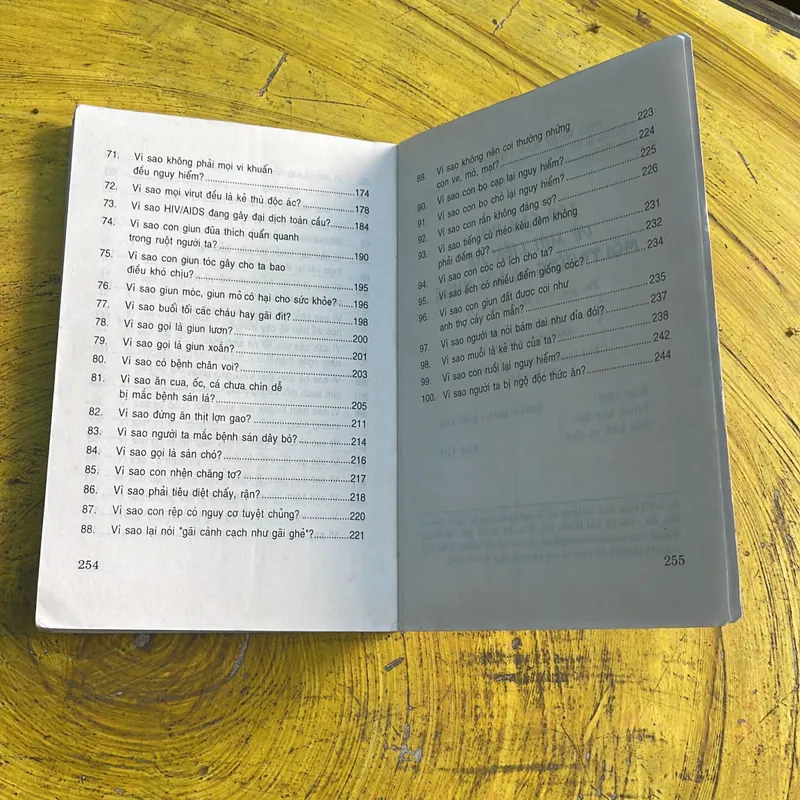 71. Vì sao không phải mọi vi khuẩn
đều nguy hiểm?.....174
72. Vì sao mọi virut đều là kẻ thù độc ác?.....178
73. Vì sao HIV/AIDS đang gây đại dịch toàn cầu?.....184
74. Vì sao con giun đũa thích quẩn quanh
trong ruột người ta?.....190
75. Vì sao con giun tóc gây cho ta bao
điều khó chịu?.....195
76. Vì sao giun móc, giun mỏ có hại cho sức khỏe?.....196
77. Vì sao buổi tối các cháu hay gãi đít?.....198
78. Vì sao gọi là giun lươn?.....200
79. Vì sao gọi là giun xoắn?.....201
80. Vì sao có bệnh chân voi?.....203
81. Vì sao ăn cua, ốc, cá chưa chín dễ
bị mắc bệnh sán lá?.....205
82. Vì sao đừng ăn thịt lợn gạo?.....211
83. Vì sao người ta mắc bệnh sán dây bò?.....214
84. Vì sao gọi là sán chó?.....216
85. Vì sao con nhện chăng tơ?.....217
86. Vì sao phải tiêu diệt chấy, rận?.....218
87. Vì sao con rệp có nguy cơ tuyệt chủng?.....220
88. Vì sao lại nói "gãi cành cạch như gãi ghẻ"?.....221
254
89. Vì sao không nên coi thường những
con ve, mò, mạt?.....223
90. Vì sao con bọ cạp lại nguy hiểm?.....224
91. Vì sao con bọ chó lại nguy hiểm?.....225
92. Vì sao con rắn không đáng sợ?.....226
93. Vì sao tiếng cú mèo kêu đêm không
phải điềm dữ?.....231
94. Vì sao con cóc có ích cho ta?.....232
95. Vì sao ếch có nhiều điểm giống cóc?.....234
96. Vì sao con giun đất được coi như
anh thợ cày cần mẫn?.....235
97. Vì sao người ta nói bám dai như đỉa đói?.....237
98. Vì sao muỗi là kẻ thù của ta?.....238
99. Vì sao con ruồi lại nguy hiểm?.....242
100. Vì sao người ta bị ngộ độc thức ăn?.....244
255